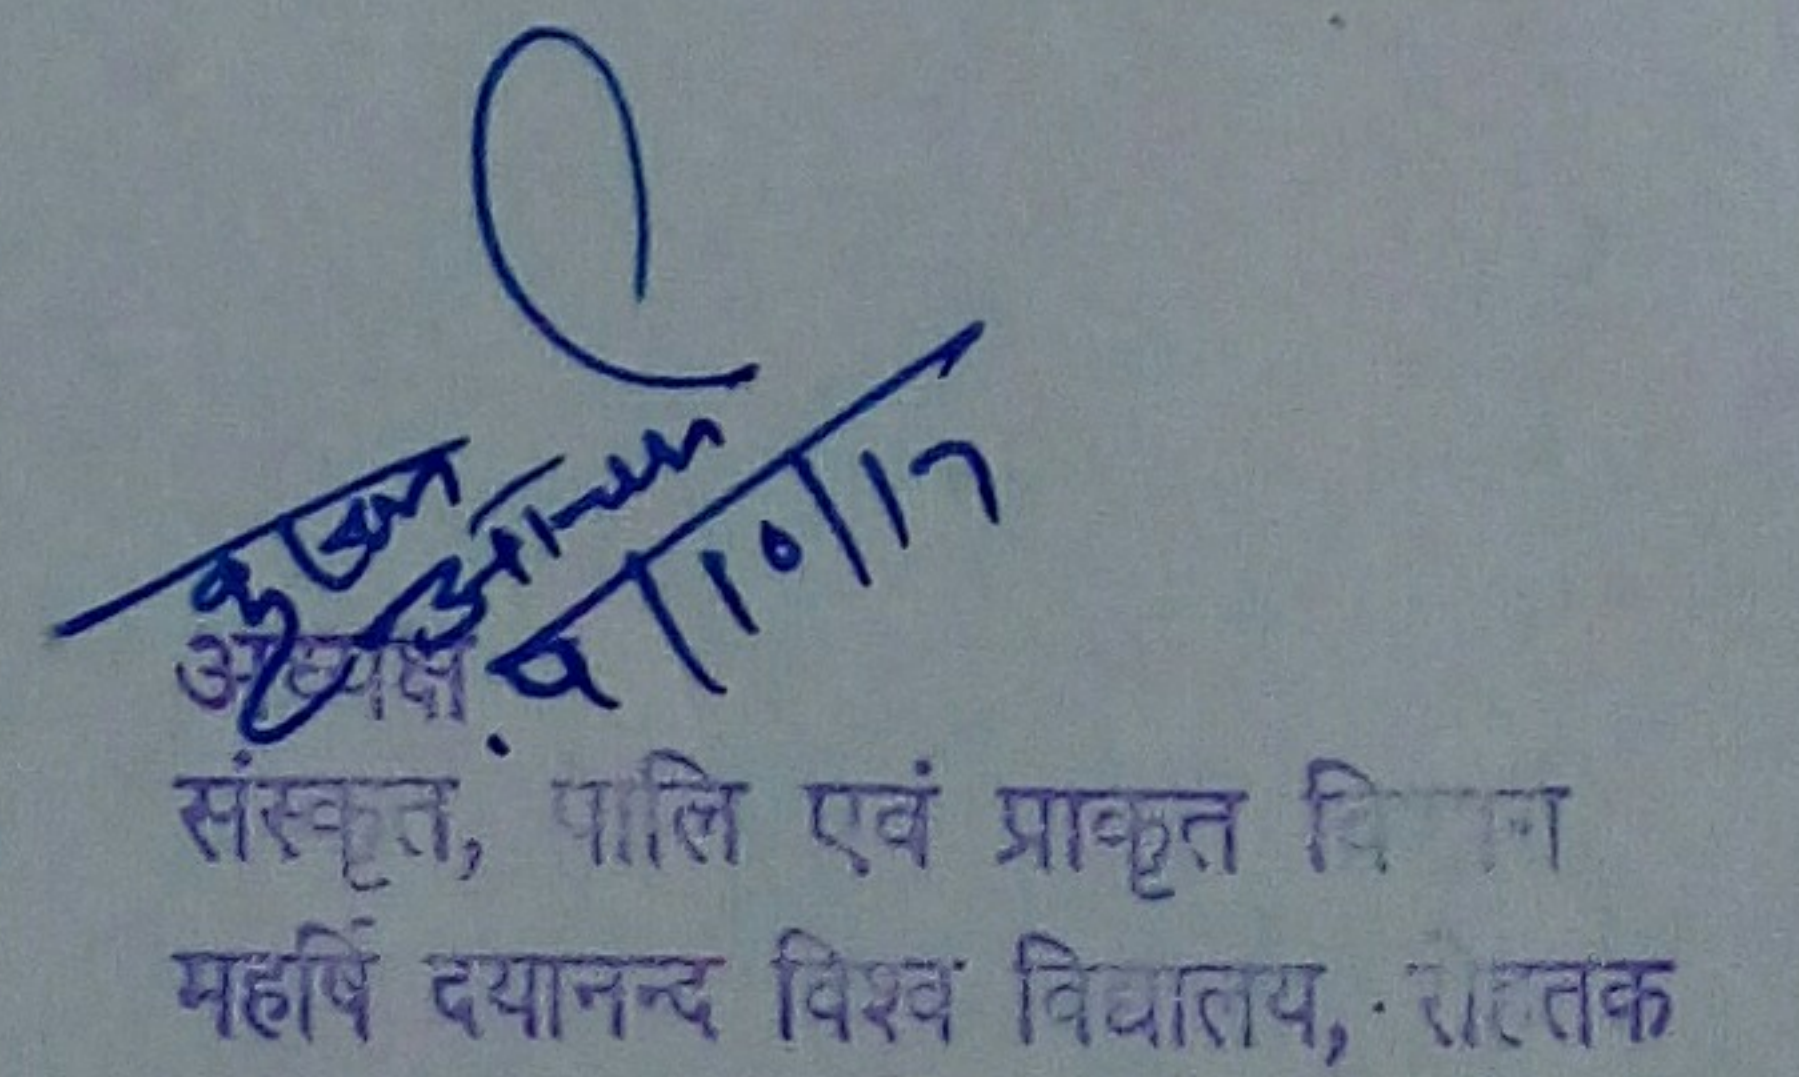 कृष्णा
आचार्य
9/10/17
अध्यक्ष
संस्कृत, पालि एवं प्राकृत विभाग
महर्षि दयानन्द विश्व विद्यालय, रोहतक